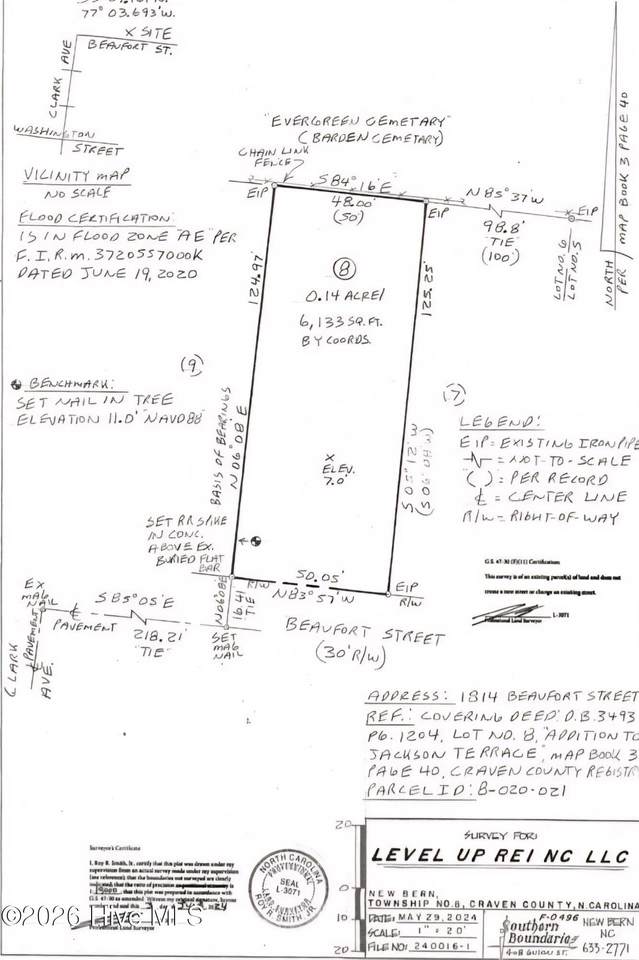 77° 03.693'W.
X SITE
BEAUFORT ST.
CLARK AVE
WASHINGTON
STREET
VICINITY MAP
NO SCALE
FLOOD CERTIFICATION:
IS IN FLOOD ZONE "AE" PER
F.I.R.M. 3720557000K
DATED JUNE 19, 2020
"EVERGREEN CEMETARY"
(BARDEN CEMETARY)
CHAIN LINK
FENCE
EIP
S84°16'E
48.00'
(50')
EIP
N85°37'W
98.8'
"TIE"
(100')
EIP
LOT NO. 6
LOT NO. 5
NORTH
PER MAP BOOK 3 PAGE 40
124.97'
8
0.14 ACRE/
6,133 SQ.FT.
BY COORDS.
125.25'
(9)
(7)
BENCHMARK:
SET NAIL IN TREE
ELEVATION 11.0' "NAVD88"
BASIS OF BEARINGS
N06°08'E
X
ELEV.
7.0'
S05°12'W
LEGEND:
EIP = EXISTING IRON PIPE
= NOT-TO-SCALE
( ) = PER RECORD
℄ = CENTER LINE
R/W = RIGHT-OF-WAY
SET RR SPIKE
IN CONC.
ABOVE EX.
BURIED FLAT
BAR
R/W
50.05'
N83°57'W
EIP
R/W
N06°08'E
16.41
TIE
SET
MAG
NAIL
EX
MAG
NAIL
S85°05'E
℄ PAVEMENT
218.21'
"TIE"
CLARK AVE.
℄ PAVEMENT
BEAUFORT STREET
(30' R/W)
G.S. 47-30 (F)(11) Certification:
This survey is of an existing parcel(s) of land and does not
create a new street or change an existing street.
L-3071
Professional Land Surveyor
ADDRESS: 1814 BEAUFORT STREET
REF.: COVERING DEED: D.B. 3493
PG. 1204, LOT NO. 8, "ADDITION TO
JACKSON TERRACE", MAP BOOK 3
PAGE 40, CRAVEN COUNTY REGISTRY
PARCEL ID: 8-020-021
Surveyor's Certificate
I, Roy R. Smith, Jr. certify that this plat was drawn under my
supervision from an actual survey made under my supervision
(see reference); that the boundaries not surveyed are clearly
indicated; that the ratio of precision
that this plat was prepared in accordance with
G.S. 47-30 as amended. Witness my original signature, license
Professional Land Surveyor
NORTH CAROLINA
PROFESSIONAL
SEAL
L-3071
LAND SURVEYOR
ROY R. SMITH, JR.
20
0
10
20
SURVEY FOR:
LEVEL UP REI NC LLC
NEW BERN,
TOWNSHIP NO.8, CRAVEN COUNTY, N.CAROLINA
DATE: MAY 29, 2024
SCALE: 1" = 20'
FILE NO: 240016-1
F-0496
Southern
Boundaries
408 GUION ST.
NEW BERN
NC
633-2771
©2026 Live MLS